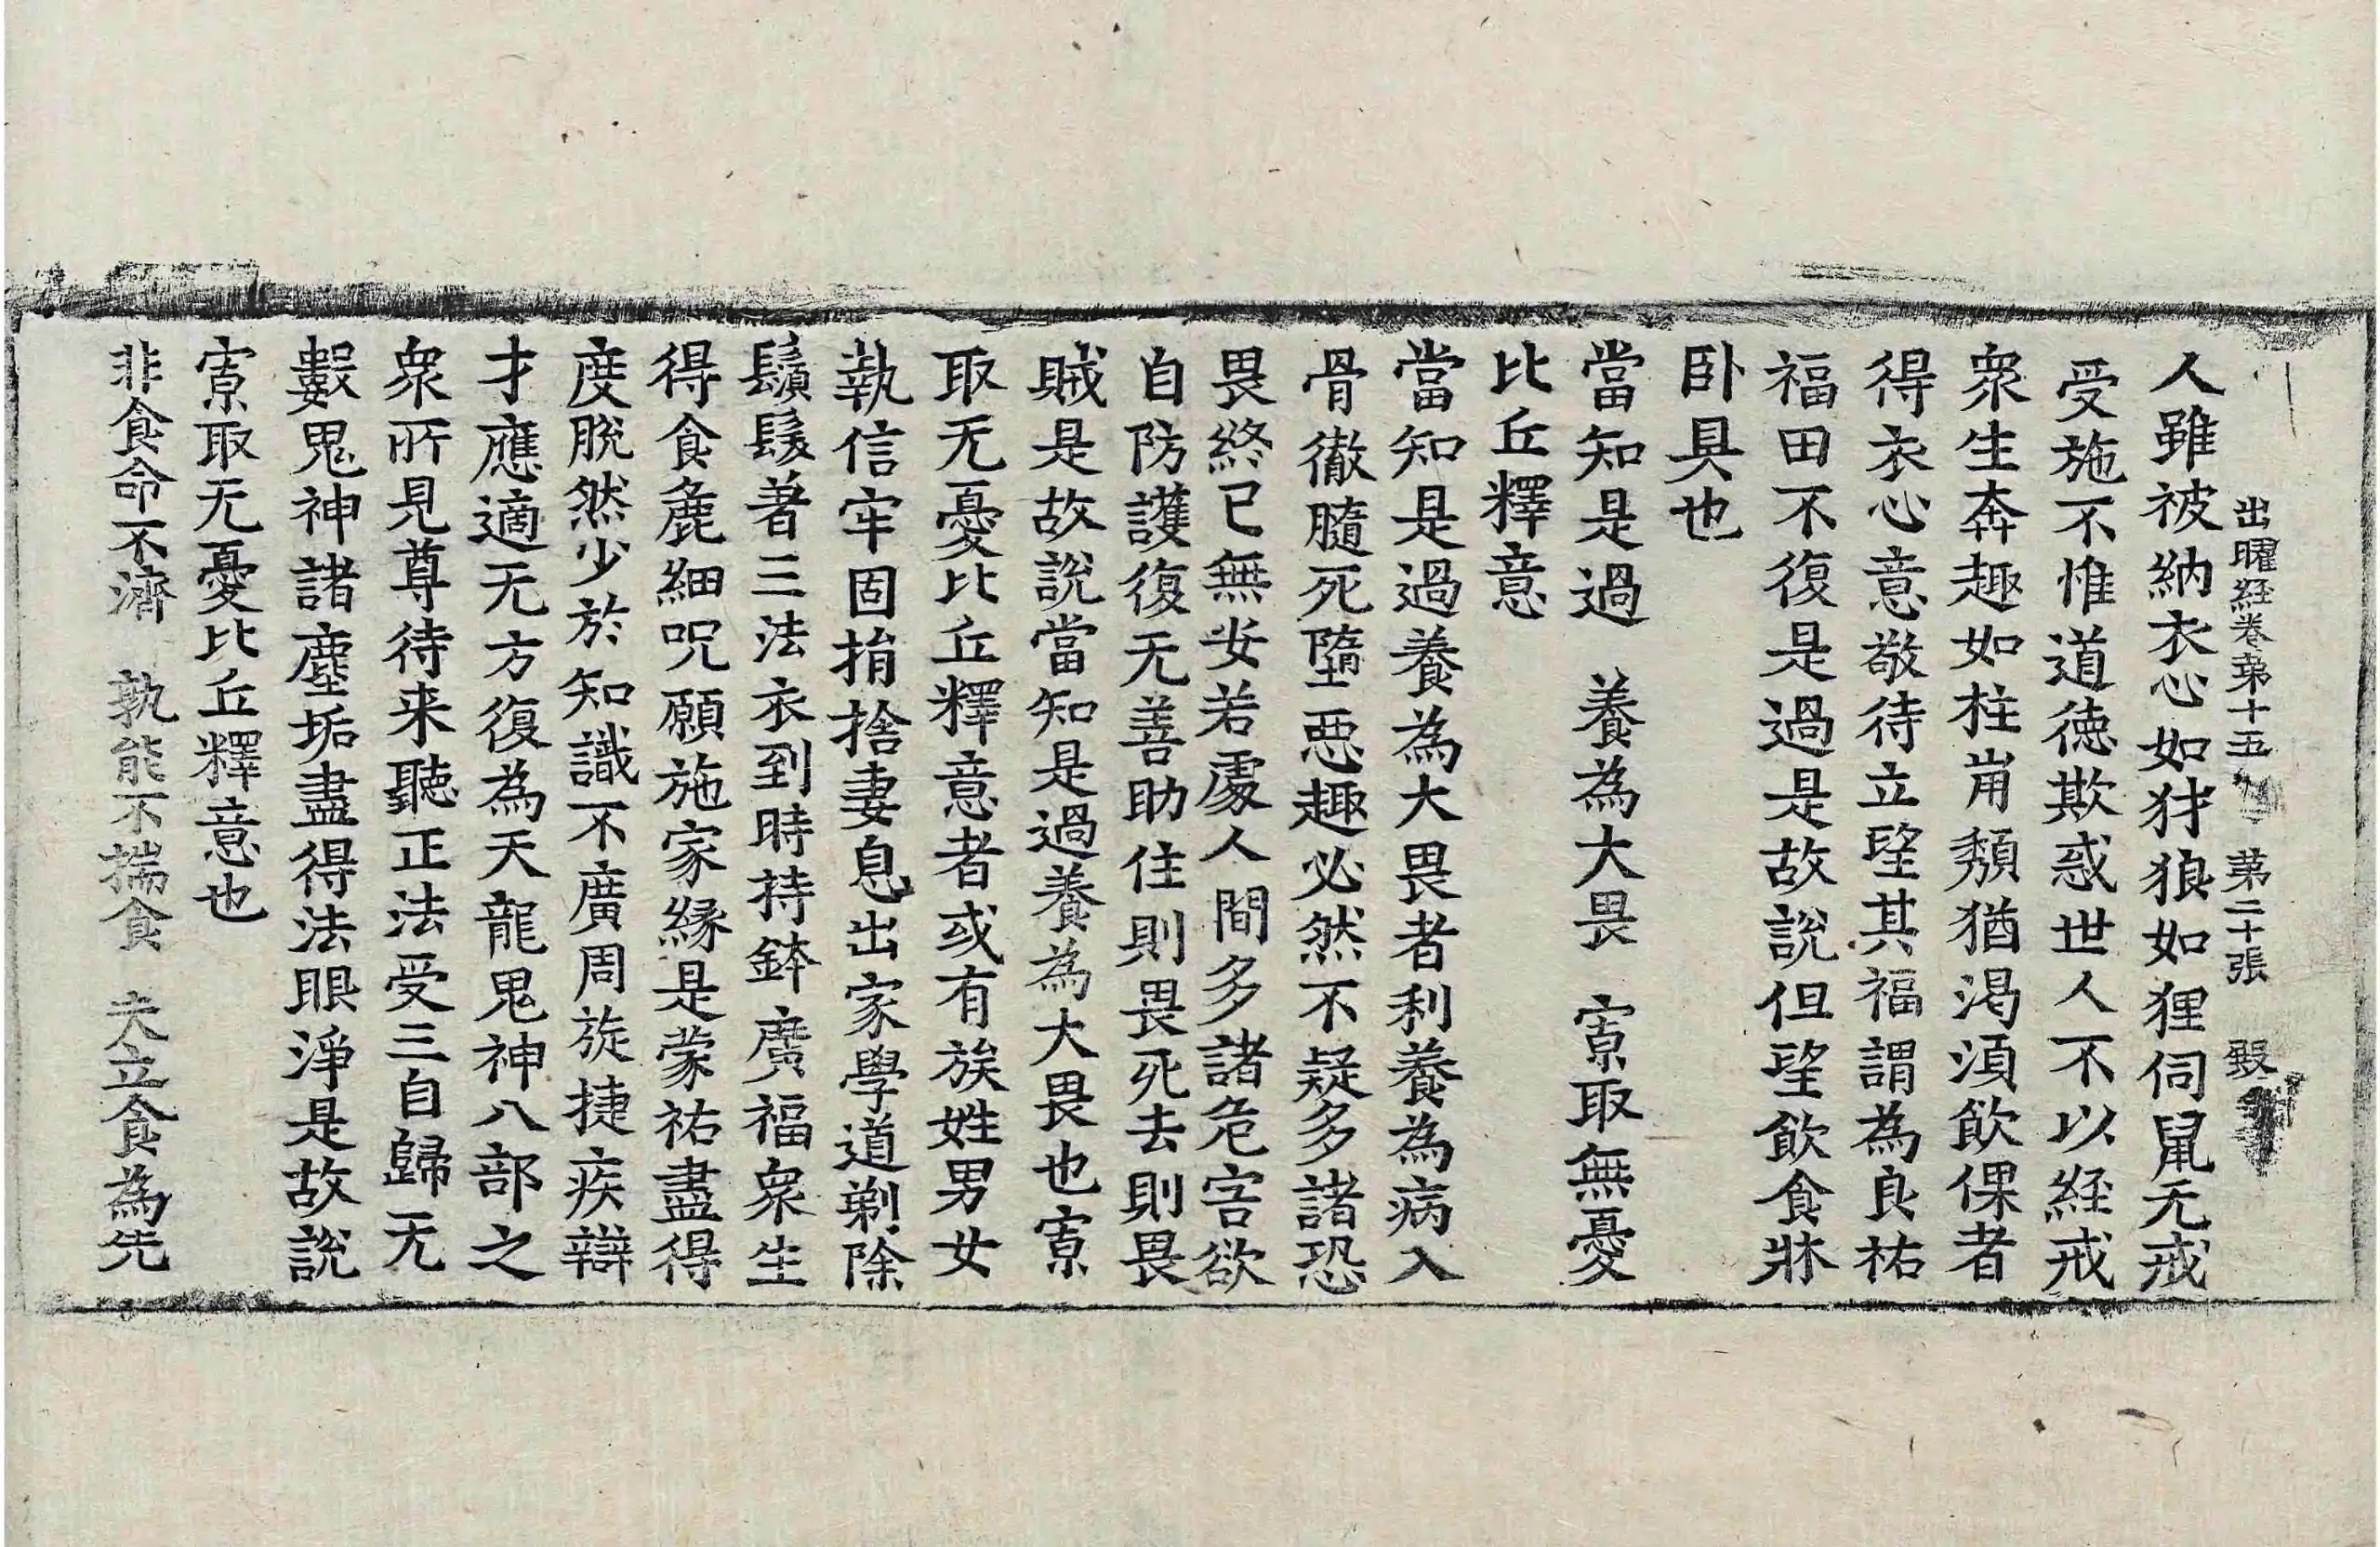 出曜經卷第十五 第二十張 設
人雖被納衣心如犲狼如狸伺鼠无戒
受施不惟道德欺惑世人不以經戒
衆生奔趣如柱崩頹猶渴湏飲倮者
得衣心意敬待立望其福謂為良祐
福田不復是過是故說但望飲食牀
卧具也
當知是過 養為大畏 㝡取無憂
比丘釋意
當知是過養為大畏者利養為病入
骨徹髓死墮惡趣必然不疑多諸恐
畏終已無安若處人間多諸危害欲
自防護復无善助住則畏死去則畏
賊是故說當知是過養為大畏也㝡
取无憂比丘釋意者或有族姓男女
執信牢固捐捨妻息出家學道剃除
鬚髮著三法衣到時持鉢廣福衆生
得食麁細呪願施家緣是蒙祐盡得
度脫然少於知識不廣周旋捷疾辯
才應適无方復為天龍鬼神八部之
衆所見尊待来聽正法受三自歸无
數鬼神諸塵垢盡得法眼淨是故說
㝡取无憂比丘釋意也
非食命不濟 孰能不揣食 夫立食為先